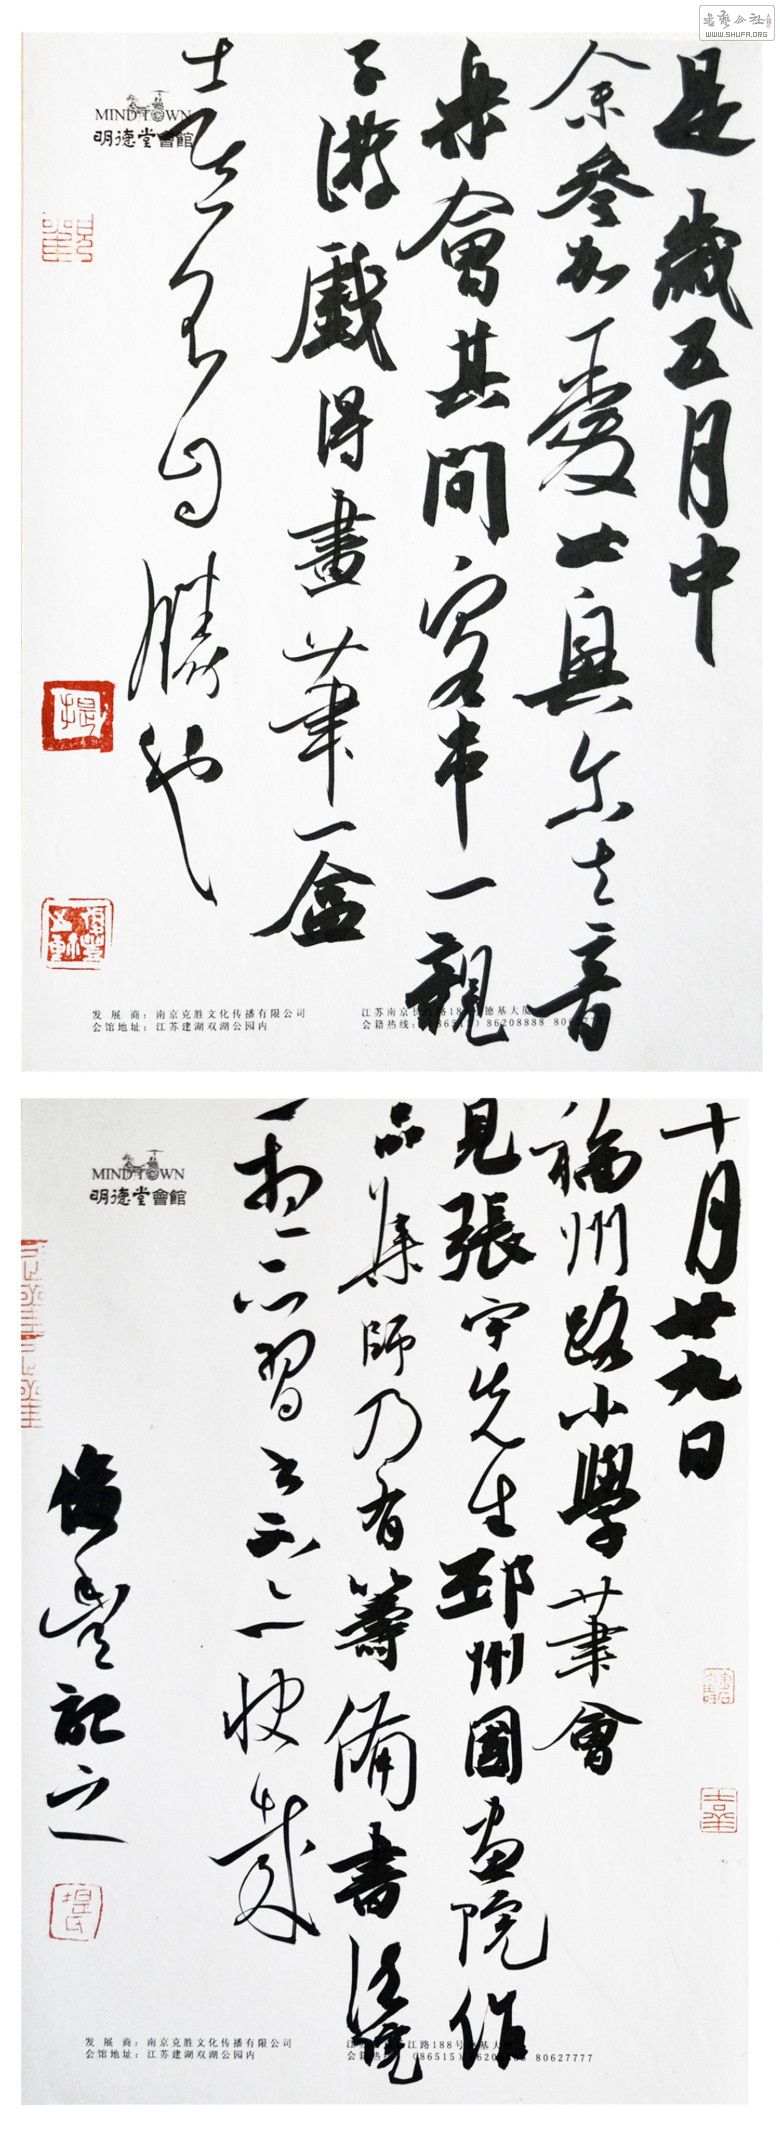 WWW.SHUFA.ORG
是歲五月中
余參加愛世奧尔夫音
樂會其間穿串一親
子游戲得畫筆一盒
士喜不自勝也
MIND TOWN
明德堂會館
发展商：南京克胜文化传播有限公司
会馆地址：江苏建湖双湖公园内
江苏南京长江路188号德基大厦
会籍热线：（86515）86208888 80627777
十月廿九日
福州路小學筆會
見張宇先生邳州國画院作
品集師乃有籌備書法院
之習
快哉
俊豊記之
MIND TOWN
明德堂會館
发展商：南京克胜文化传播有限公司
会馆地址：江苏建湖双湖公园内
江路188号德基大
会籍热线（86515）86208888 80627777